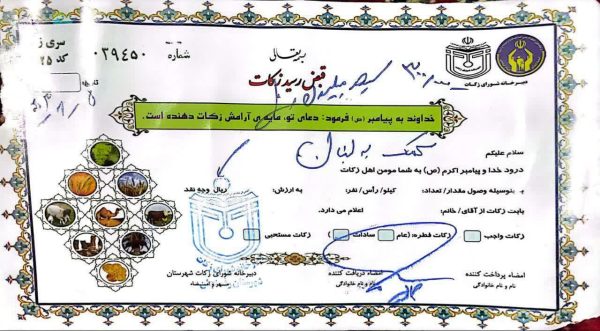 بسمه تعالی
شماره ۰۳۹۴۵۰
سری ز
کد ۲۵
دبیرخانه شورای زکات
قبض رسید زکات
خداوند به پیامبر (ص) فرمود: دعای تو، مایه ی آرامش زکات دهنده است.
کمک به لبنان
سلام علیکم
درود خدا و پیامبر اکرم (ص) به شما مومن اهل زکات
بدینوسیله وصول مقدار/تعداد: کیلو/رأس/نفر: به ارزش: ریال وجه نقد
بابت زکات از آقای/خانم: اعلام می دارد.
زکات واجب زکات فطره: (عام سادات) زکات مستحبی
امضاء پرداخت کننده
نام و نام خانوادگی
امضاء دریافت کننده
نام و نام خانوادگی
دبیرخانه شورای زکات شهرستان
مهر و امضاء